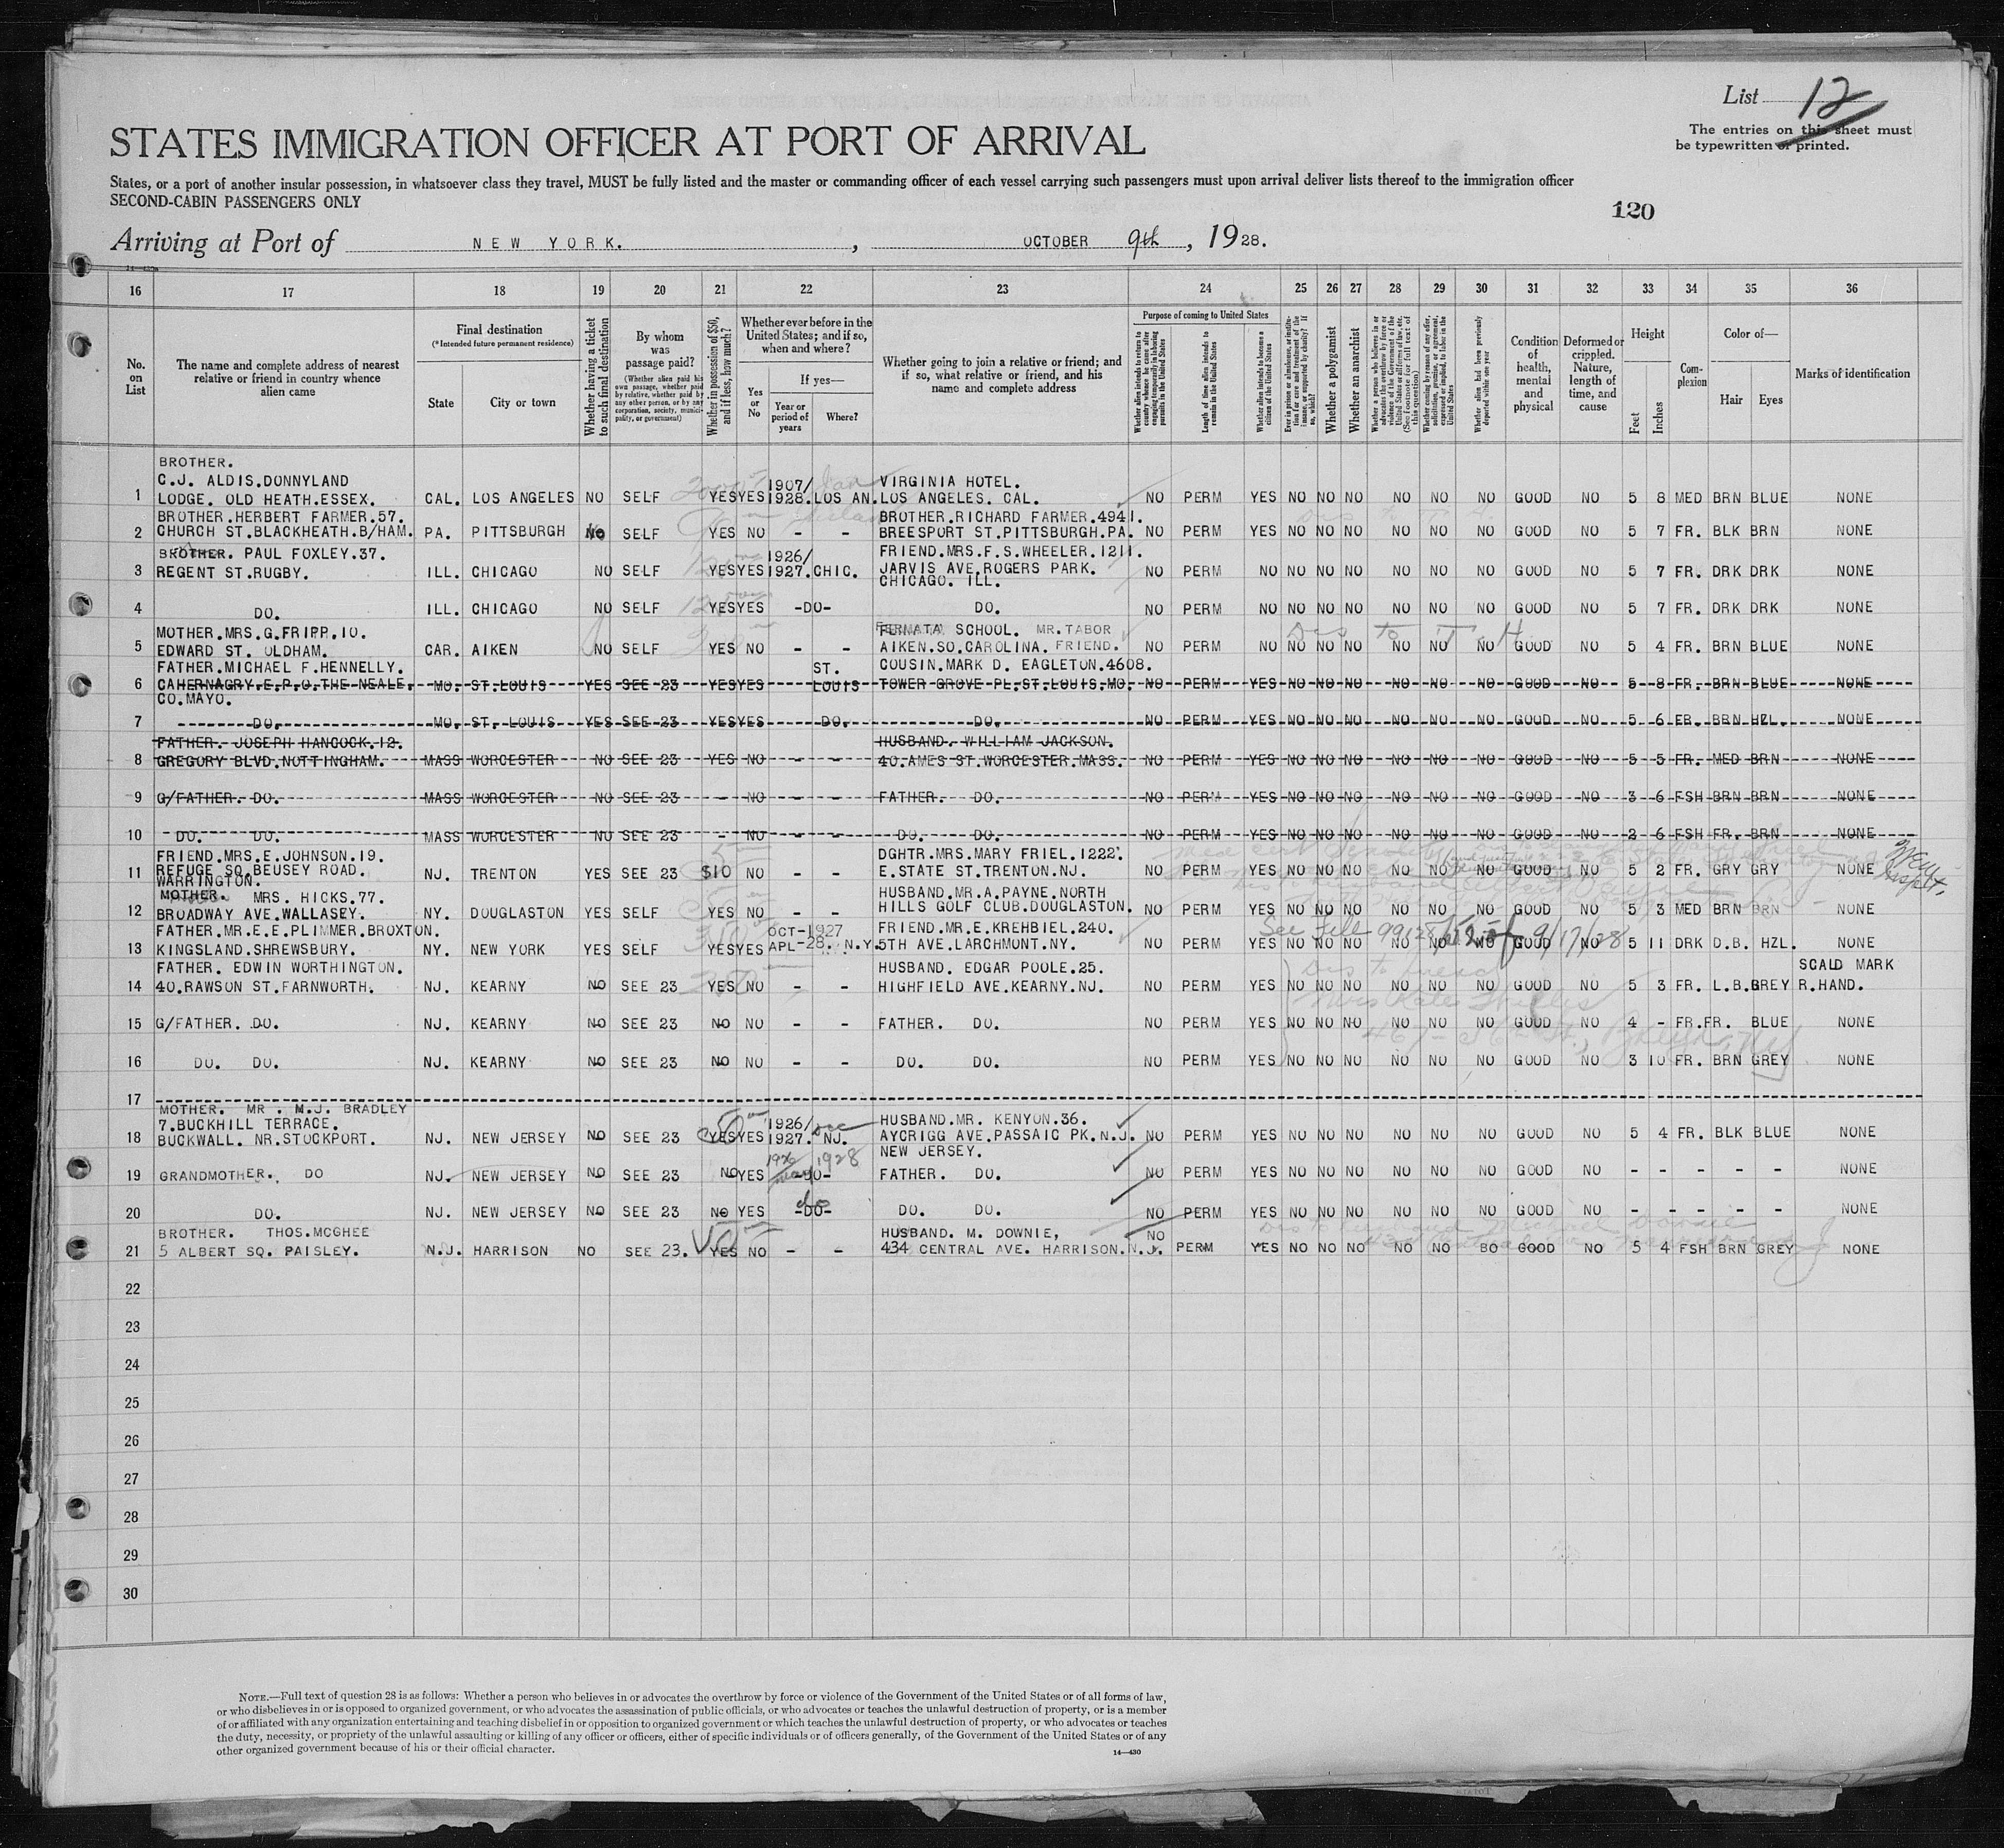 List 12
The entries on this sheet must
be typewritten or printed.
STATES IMMIGRATION OFFICER AT PORT OF ARRIVAL
States, or a port of another insular possession, in whatsoever class they travel, MUST be fully listed and the master or commanding officer of each vessel carrying such passengers must upon arrival deliver lists thereof to the immigration officer
SECOND-CABIN PASSENGERS ONLY
120
Arriving at Port of NEW YORK. , OCTOBER 9th, 1928.
16 17 18 19 20 21 22 23 24 25 26 27 28 29 30 31 32 33 34 35 36
No. on List
The name and complete address of nearest relative or friend in country whence alien came
Final destination
(*Intended future permanent residence)
State
City or town
Whether having a ticket to such final destination
By whom was passage paid?
(Whether alien paid his own passage, whether paid by relative, whether paid by any other person, or by any corporation, society, municipality, or government)
Whether in possession of $50, and if less, how much?
Whether ever before in the United States; and if so, when and where?
Yes or No
If yes—
Year or period of years
Where?
Whether going to join a relative or friend; and if so, what relative or friend, and his name and complete address
Purpose of coming to United States
Whether alien intends to return to country whence he came after engaging temporarily in laboring pursuits in the United States
Length of time alien intends to remain in the United States
Whether alien intends to become a citizen of the United States
Ever in prison or almshouse, or institution for care and treatment of the insane, or supported by charity? If so, which?
Whether a polygamist
Whether an anarchist
Whether a person who believes in or advocates the overthrow by force or violence of the Government of the United States or all forms of law, etc. (See footnote for full text of this question)
Whether coming by reason of any offer, solicitation, promise, or agreement, expressed or implied, to labor in the United States
Whether alien had been previously deported within one year
Condition of health, mental and physical
Deformed or crippled. Nature, length of time, and cause
Height
Feet
Inches
Complexion
Color of—
Hair
Eyes
Marks of identification
BROTHER.
C.J. ALDIS.DONNYLAND VIRGINIA HOTEL.
1 LODGE. OLD HEATH.ESSEX. CAL. LOS ANGELES NO SELF YES YES 1907/1928. LOS AN. LOS ANGELES. CAL. NO PERM YES NO NO NO NO NO NO GOOD NO 5 8 MED BRN BLUE NONE
BROTHER.HERBERT FARMER.57. BROTHER.RICHARD FARMER.4941.
2 CHURCH ST.BLACKHEATH.B/HAM. PA. PITTSBURGH No SELF YES NO - - BREESPORT ST.PITTSBURGH.PA. NO PERM YES NO NO NO NO NO NO GOOD NO 5 7 FR. BLK BRN NONE
BROTHER. PAUL FOXLEY.37. FRIEND.MRS.F.S.WHEELER.1211.
3 REGENT ST.RUGBY. ILL. CHICAGO NO SELF YES YES 1926/1927. CHIC. JARVIS AVE.ROGERS PARK. NO PERM NO NO NO NO NO NO NO GOOD NO 5 7 FR. DRK DRK NONE
CHICAGO. ILL.
4 DO. ILL. CHICAGO NO SELF YES YES -DO- DO. NO PERM NO NO NO NO NO NO NO GOOD NO 5 7 FR. DRK DRK NONE
MOTHER.MRS.G.FRIPP.10. SCHOOL. MR.TABOR
5 EDWARD ST. OLDHAM. CAR. AIKEN NO SELF YES NO - - AIKEN.SO.CAROLINA. FRIEND. NO PERM NO NO NO NO NO NO NO GOOD NO 5 4 FR. BRN BLUE NONE
FATHER.MICHAEL F.HENNELLY. ST. COUSIN.MARK D. EAGLETON.4608.
6 CAHERNAGRY.E.P.O.THE NEALE. MO. ST.LOUIS YES SEE 23 YES YES LOUIS TOWER GROVE PL.ST.LOUIS.MO. NO PERM YES NO NO NO NO NO NO GOOD NO 5 8 FR. BRN BLUE NONE
CO.MAYO.
7 DO. MO. ST. LOUIS YES SEE 23 YES YES DO. DO. NO PERM YES NO NO NO NO NO NO GOOD NO 5 6 FR. BRN HZL. NONE
FATHER. JOSEPH HANCOCK.12. HUSBAND. WILLIAM JACKSON.
8 GREGORY BLVD.NOTTINGHAM. MASS WORCESTER NO SEE 23 YES NO - - 40.AMES ST.WORCESTER.MASS. NO PERM YES NO NO NO NO NO NO GOOD NO 5 5 FR. MED BRN NONE
9 G/FATHER. DO. MASS WORCESTER NO SEE 23 - NO - - FATHER. DO. NO PERM YES NO NO NO NO NO NO GOOD NO 3 6 FSH BRN BRN NONE
10 DO. DO. MASS WORCESTER NO SEE 23 - NO - - DO. DO. NO PERM YES NO NO NO NO NO NO GOOD NO 2 6 FSH FR. BRN NONE
FRIEND.MRS.E.JOHNSON.19. DGHTR.MRS.MARY FRIEL.1222.
11 REFUGE SQ.BEUSEY ROAD. NJ. TRENTON YES SEE 23 $10 NO - - E.STATE ST.TRENTON.NJ. NO PERM YES NO NO NO NO NO NO GOOD NO 5 2 FR. GRY GRY NONE
WARRINGTON.
MOTHER. MRS. HICKS.77. HUSBAND.MR.A.PAYNE.NORTH
12 BROADWAY AVE.WALLASEY. NY. DOUGLASTON YES SELF YES NO - - HILLS GOLF CLUB.DOUGLASTON. NO PERM YES NO NO NO NO NO NO GOOD NO 5 3 MED BRN BRN NONE
FATHER.MR.E.E.PLIMMER.BROXTON. OCT-1927 FRIEND.MR.E.KREHBIEL.240. See File 99128/
13 KINGSLAND.SHREWSBURY. NY. NEW YORK YES SELF YES YES APL-28. N.Y. 5TH AVE.LARCHMONT.NY. NO PERM YES NO NO NO NO NO NO GOOD NO 5 11 DRK D.B. HZL. NONE
FATHER. EDWIN WORTHINGTON. HUSBAND. EDGAR POOLE.25. SCALD MARK
14 40.RAWSON ST.FARNWORTH. NJ. KEARNY NO SEE 23 YES NO - - HIGHFIELD AVE.KEARNY.NJ. NO PERM YES NO NO NO NO NO NO GOOD NO 5 3 FR. L.B. GREY R.HAND.
15 G/FATHER. DO. NJ. KEARNY NO SEE 23 NO NO - - FATHER. DO. NO PERM YES NO NO NO NO NO NO GOOD NO 4 - FR. FR. BLUE NONE
16 DO. DO. NJ. KEARNY NO SEE 23 NO NO - - DO. DO. NO PERM YES NO NO NO NO NO NO GOOD NO 3 10 FR. BRN GREY NONE
17
MOTHER. MR . M.J. BRADLEY
7.BUCKHILL TERRACE. HUSBAND.MR. KENYON.36.
18 BUCKWALL. NR.STOCKPORT. NJ. NEW JERSEY NO SEE 23 YES YES 1926/1927. NJ. AYCRIGG AVE.PASSAIC PK.N.J. NO PERM YES NO NO NO NO NO NO GOOD NO 5 4 FR. BLK BLUE NONE
NEW JERSEY.
19 GRANDMOTHER. DO NJ. NEW JERSEY NO SEE 23 NO YES 1926 1928 -DO- FATHER. DO. NO PERM YES NO NO NO NO NO NO GOOD NO - - - - - NONE
20 DO. NJ. NEW JERSEY NO SEE 23 NO YES do -DO- DO. DO. NO PERM YES NO NO NO NO NO NO GOOD NO - - - - - NONE
BROTHER. THOS.MCGHEE HUSBAND. M. DOWNIE, NO
21 5 ALBERT SQ. PAISLEY. N.J. HARRISON NO SEE 23. YES NO - - 434 CENTRAL AVE. HARRISON.N.J. PERM YES NO NO NO NO NO BO GOOD NO 5 4 FSH BRN GREY NONE
22
23
24
25
26
27
28
29
30
NOTE.—Full text of question 28 is as follows: Whether a person who believes in or advocates the overthrow by force or violence of the Government of the United States or of all forms of law,
or who disbelieves in or is opposed to organized government, or who advocates the assassination of public officials, or who advocates or teaches the unlawful destruction of property, or is a member
of or affiliated with any organization entertaining and teaching disbelief in or opposition to organized government or which teaches the unlawful destruction of property, or who advocates or teaches
the duty, necessity, or propriety of the unlawful assaulting or killing of any officer or officers, either of specific individuals or of officers generally, of the Government of the United States or of any
other organized government because of his or their official character.
14—430